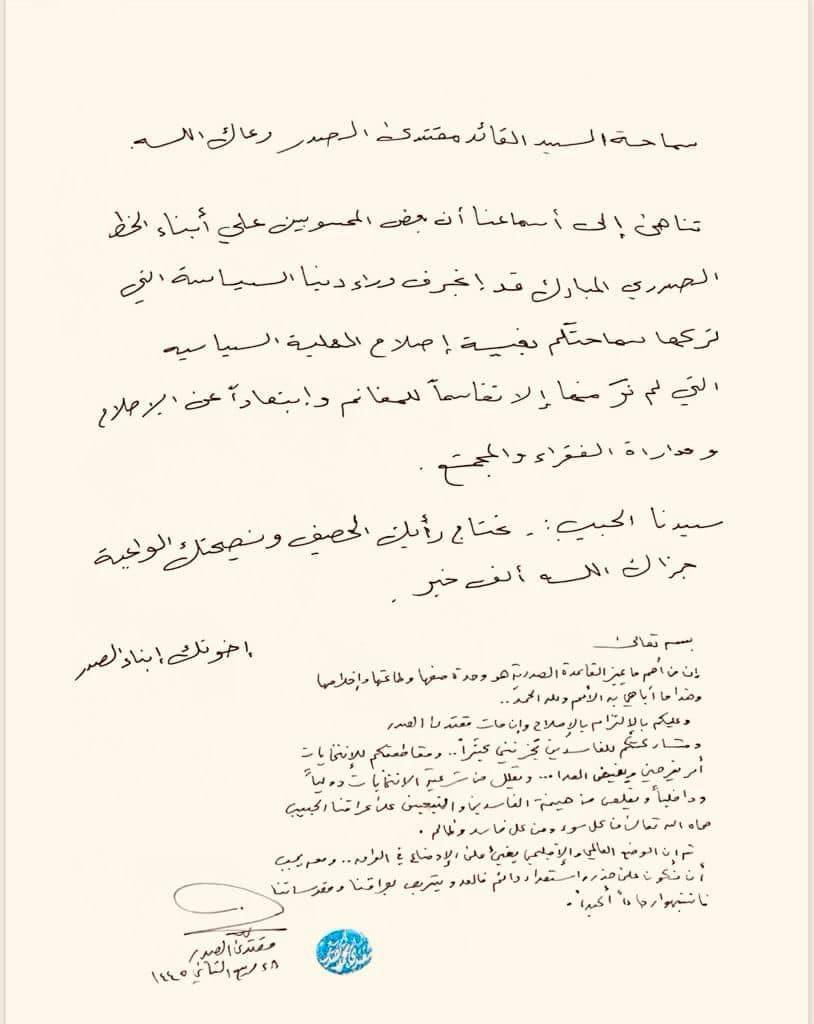 سماحة السيد القائد مقتدى الصدر رعاك الله.
تناهى إلى أسماعنا أن بعض المحسوبين على أبناء الخط
الصدري المبارك قد إنجرف وراء دنيا السياسة التي
تركها سماحتكم بغية إصلاح العملية السياسيه
التي لم نرَ منها إلا تقاسماً للمغانم وإبتعاداً عن الإصلاح
ومداراة الفقراء والمجتمع.
سيدنا الحبيب:. نحتاج رأيك الحصيف ونصيحتك الواعية
جزاك الله ألف خير.
إخوتك إبناء الصدر
بسمه تعالى
إن من أهم ما يميز القاعدة الصدرية هو وحدة صفها وطاعتها وإخلاصها
وهذا ما أباهي به الأمم ولله الحمد..
وعليكم بالإلتزام بالإصلاح وإن مات مقتدى الصدر
ومشاركتكم للفاسدين تحزنني كثيراً.. ومقاطعتكم للإنتخابات
أمر يفرحني ويغيض العدا... ويقلل من شرعية الانتخابات دولياً
وداخلياً ويقلص من هيمنة الفاسدين والتبعيين على عراقنا الحبيب
حماه الله تعالى من كل سوء ومن كل فاسد وظالم.
ثم إن الوضع العالمي والإقليمي يغني على الإوضاع في العراق.. ومعه يجب
أن نكون على حذر وإستعداد دائم فالعدو يتربص بعراقنا ومقدساتنا
فانتبهوا رجاءاً أكيداً.
مقتدى الصدر
٢٨ ربيع الثاني ١٤٤٥